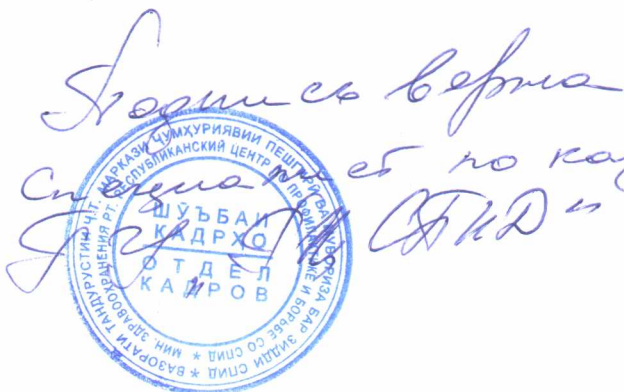 Подпись верна
Специалист по ка
ГУ "РЦ СПИД"
ВАЗОРАТИ ТАНДУРУСТИИ Ҷ.Т. МАРКАЗИ ҶУМҲУРИЯВИИ ПЕШГИРӢ ВА МУБОРИЗА БАР ЗИДДИ СПИД
МИН. ЗДРАВООХРАНЕНИЯ РТ. РЕСПУБЛИКАНСКИЙ ЦЕНТР ПО ПРОФИЛАКТИКЕ И БОРЬБЕ СО СПИД
ШӮЪБАИ
КАДРҲО
ОТДЕЛ
КАДРОВ